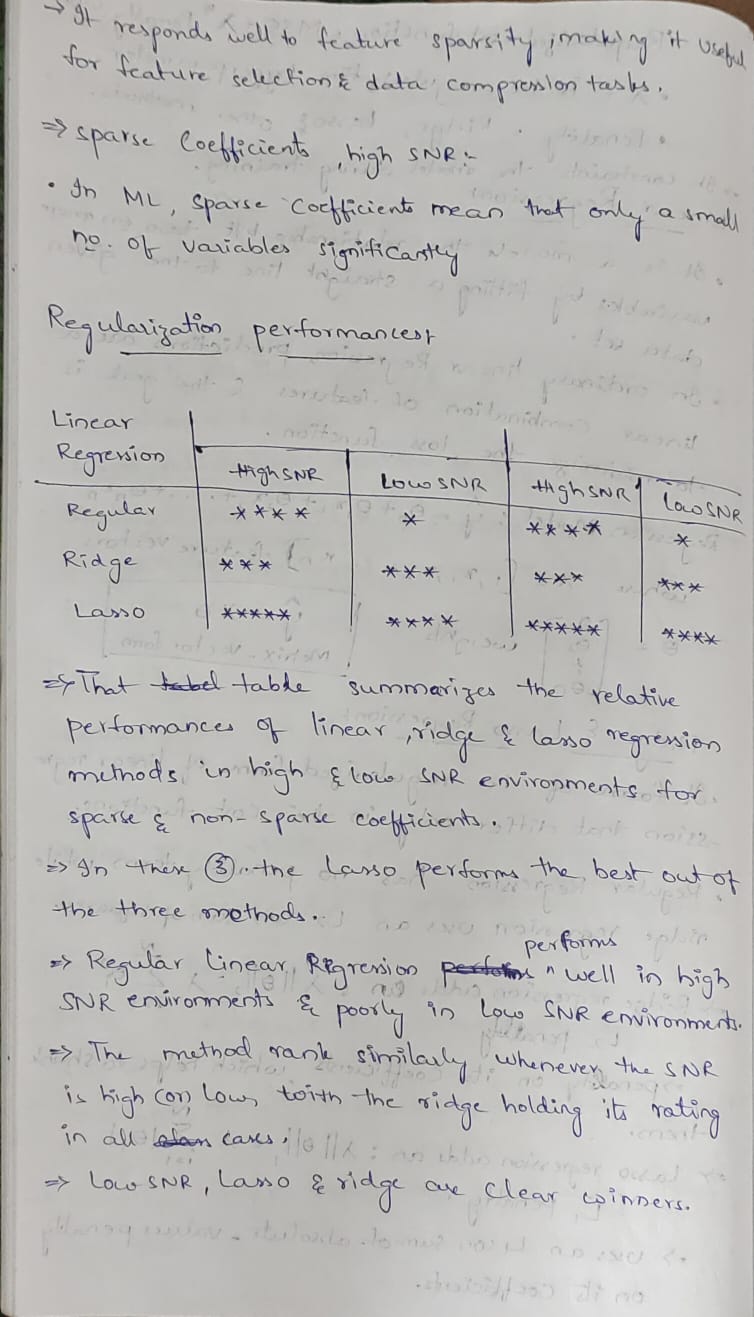 → It responds well to feature sparsity, making it useful
for feature selection & data compression tasks.
⇒ sparse Coefficients, high SNR :-
• In ML, sparse coefficients mean that only a small
no. of variables significantly
Regularization performances:
Linear
Regression | High SNR | Low SNR | High SNR | Low SNR
Regular | **** | * | **** | *
Ridge | *** | *** | *** | ***
Lasso | ***** | **** | ***** | ****
⇒ That tabel table summarizes the relative
performances of linear, ridge & lasso regression
methods in high & low SNR environments for
sparse & non-sparse coefficients.
⇒ In these ③ the Lasso performs the best out of
the three methods.
performs
⇒ Regular Linear Regression ^ well in high
SNR environments & poorly in low SNR environments.
⇒ The method rank similarly whenever the SNR
is high (or) low, with the ridge holding its rating
in all cases.
⇒ Low SNR, Lasso & ridge are clear winners.